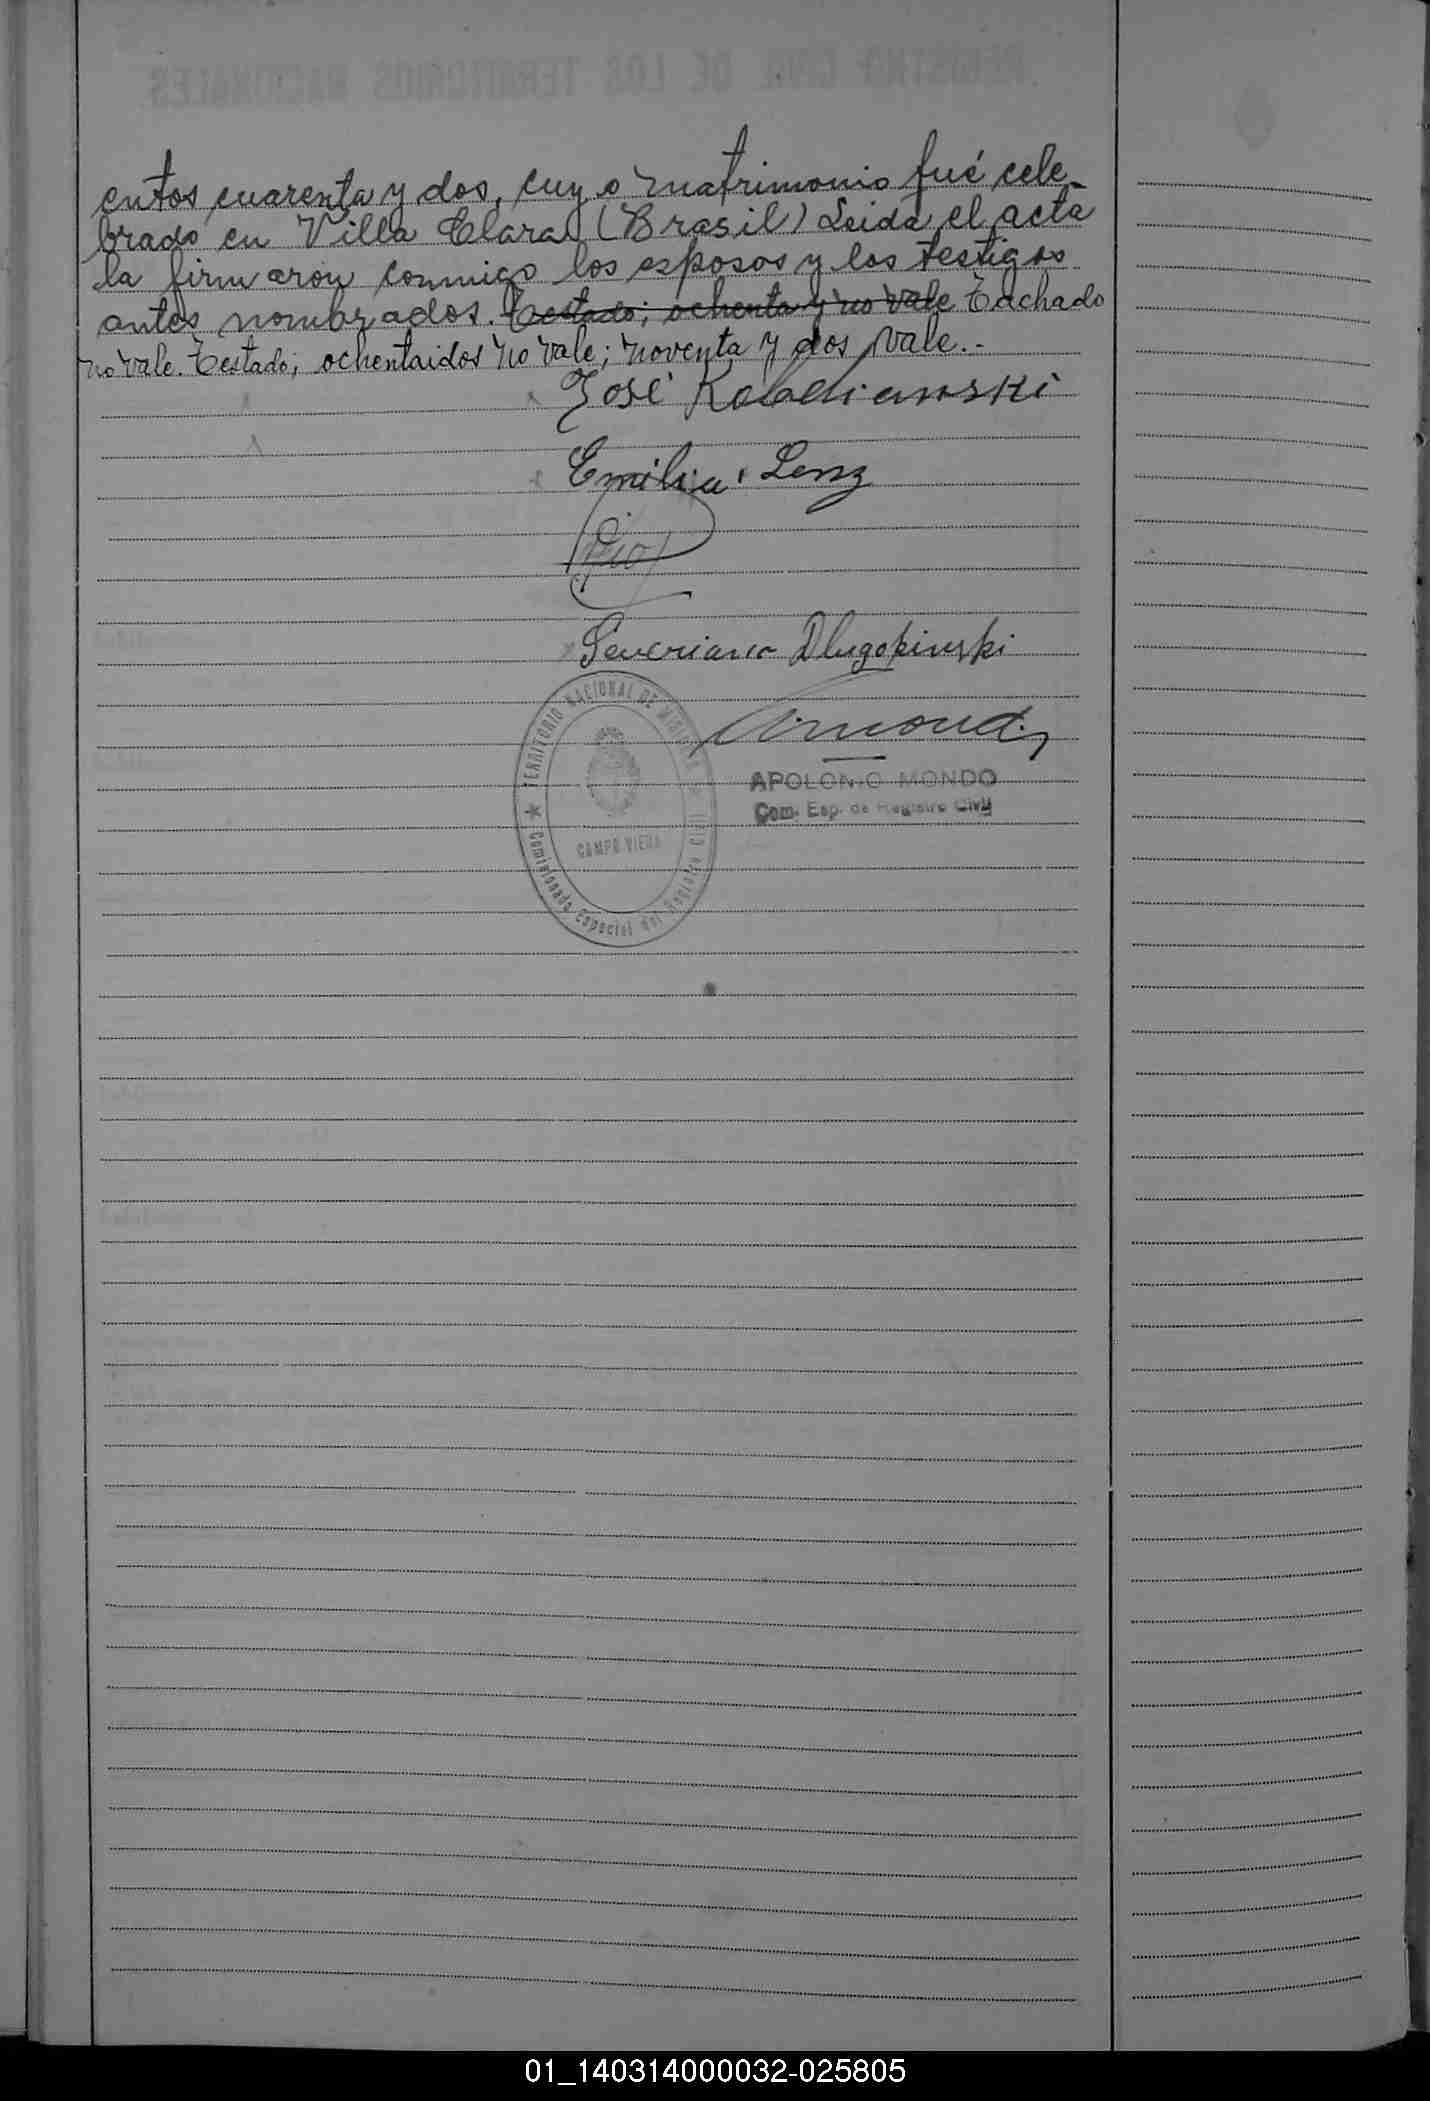 entos cuarenta y dos, cuyo matrimonio fué cele-
brado en Villa Clara (Brasil) Leida el acta
la firmaron conmigo los esposos y los testigos
antes nombrados. Testado; ochenta y no vale Tachado
no vale. Testado; ochentaidos no vale; noventa y dos vale.-
José
Emilia Lenz
Severiano Dlugokinski
TERRITORIO NACIONAL DE MISIONES
CAMPO VIERA
Comisionado Especial del Registro Civil
APOLONIO MONDO
Com. Esp. de Registro Civil
REGISTRO CIVIL DE LOS TERRITORIOS NACIONALES
01_140314000032-025805